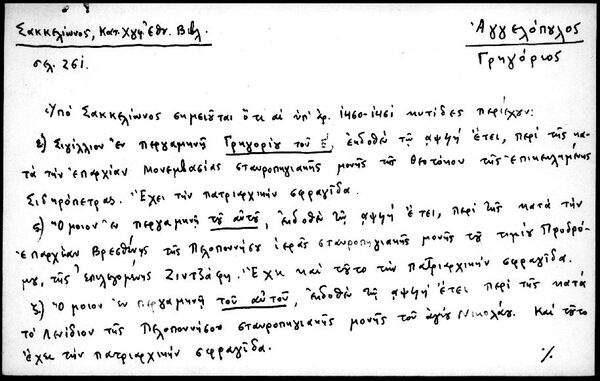 Σακκελίωνος, Κατ. Χγφ. Ἐθν. Βιβλ.
Ἀγγελόπουλος
Γρηγόριος
σελ. 261.
Ὑπὸ Σακκελίωνος σημειοῦται ὅτι αἱ ὑπ' ἀρ. 1460-1461 κυτίδες περιέχουν:
ε) Σιγίλλιον ἐν περγαμηνῇ Γρηγορίου τοῦ Ε', ἐκδοθὲν τῷ αψϟη' ἔτει, περὶ τῆς κα-
τὰ τὴν ἐπαρχίαν Μονεμβασίας σταυροπηγιακῆς μονῆς τῆς Θεοτόκου τῆς ἐπικεκλημένης
Σιδηρόπετρας. Ἔχει τὴν πατριαρχικὴν σφραγῖδα.
ς) Ὅμοιον ἐν περγαμηνῇ τοῦ αὐτοῦ, ἐκδοθὲν τῷ αψϟη' ἔτει, περὶ τῆς κατὰ τὴν
ἐπαρχίαν Βρεσθένης τῆς Πελοποννήσου ἱερᾶς σταυροπηγιακῆς μονῆς τοῦ τιμίου Προδρό-
μου, τῆς ἐπιλεγομένης Ζιντζάφη. Ἔχει καὶ τοῦτο τὴν πατριαρχικὴν σφραγῖδα.
ζ) Ὅμοιον ἐν περγαμηνῇ τοῦ αὐτοῦ, ἐκδοθὲν τῷ αψϟη' ἔτει περὶ τῆς κατὰ
τὸ Λενίδιον τῆς Πελοποννήσου σταυροπηγιακῆς μονῆς τοῦ ἁγίου Νικολάου. Καὶ τοῦτο
ἔχει τὴν πατριαρχικὴν σφραγῖδα.
·/.